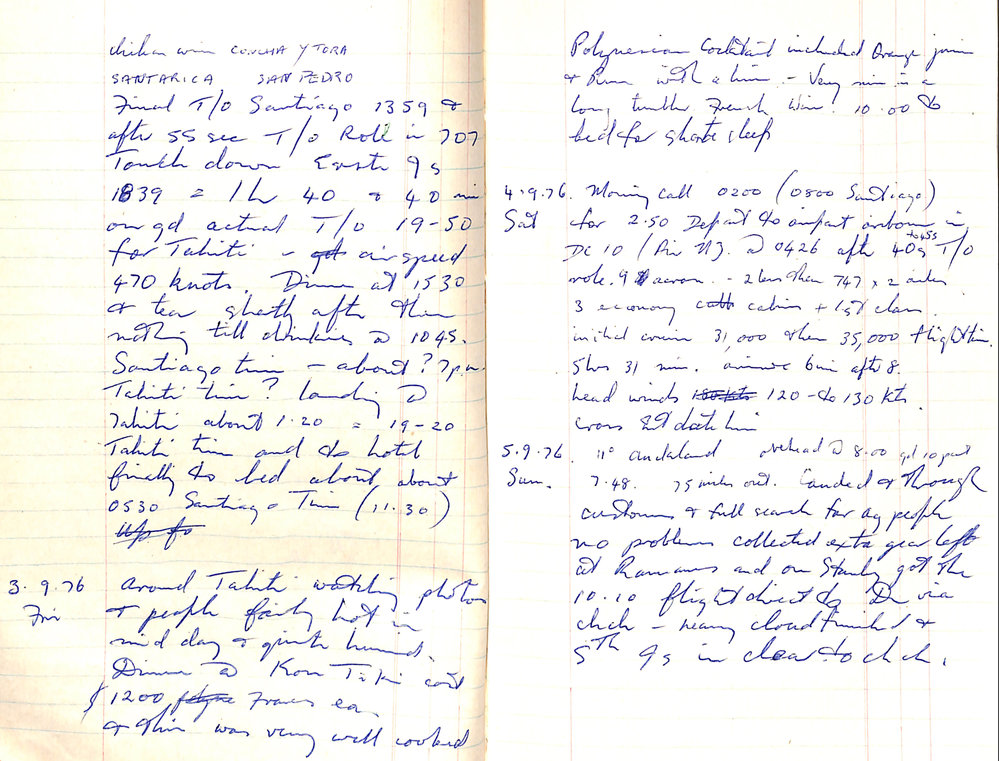 chilean wine CONCHA Y TORA
SANTARICA SAN PEDRO
Final T/O Santiago 1359 &
after 55 sec T/O Roll in 707
Touch down Easter Is
1839 = 1 hr 40 + 40 min
on gd actual T/O 19-50
for Tahiti - airspeed
470 knots. Dinner at 1530
& tea shortly after then
nothing till drinkies @ 1045.
Santiago time - about ? 7 p.m.
Tahiti time? landing @
Tahiti about 1.20 = 19-20
Tahiti time and to hotel
finally to bed about about
0530 Santiago Time (11.30)
Up to
3.9.76 Around Tahiti watching photos
Fri & people fairly hot in
mid day & quite humid.
Dinner @ Kon Tiki cost
1200 Francs ea
& this was very well cooked
Polynesian Cocktail included Orange juice
& Rum with a lime - Very nice in a
long tumbler French Wine. 10.00 to
bed for short sleep
4.9.76. Morning call 0200 (0800 Santiago)
Sat for 2.50 Depart to airport airborne in
DC 10 (Air NZ. @ 0426 after 40s to 45s T/O
9 across - 2 less than 747 x 2 aisles
3 economy cabins + 1st class
initial cruise 31,000 then 35,000 flight time.
5 hrs 31 min. 6 min after 8.
head winds 180 kts 120 - to 130 kts.
cross date line
5.9.76. 11° Auckland overhead @ 8.00
Sun. 7.48. 75 miles out. Landed & through
customs & full search for ag people
no problems collected extra gear left
at and on Stanley got the
10.10 flight direct to Dn via
chch - heavy cloud finished &
5th Is in clear to ch ch.